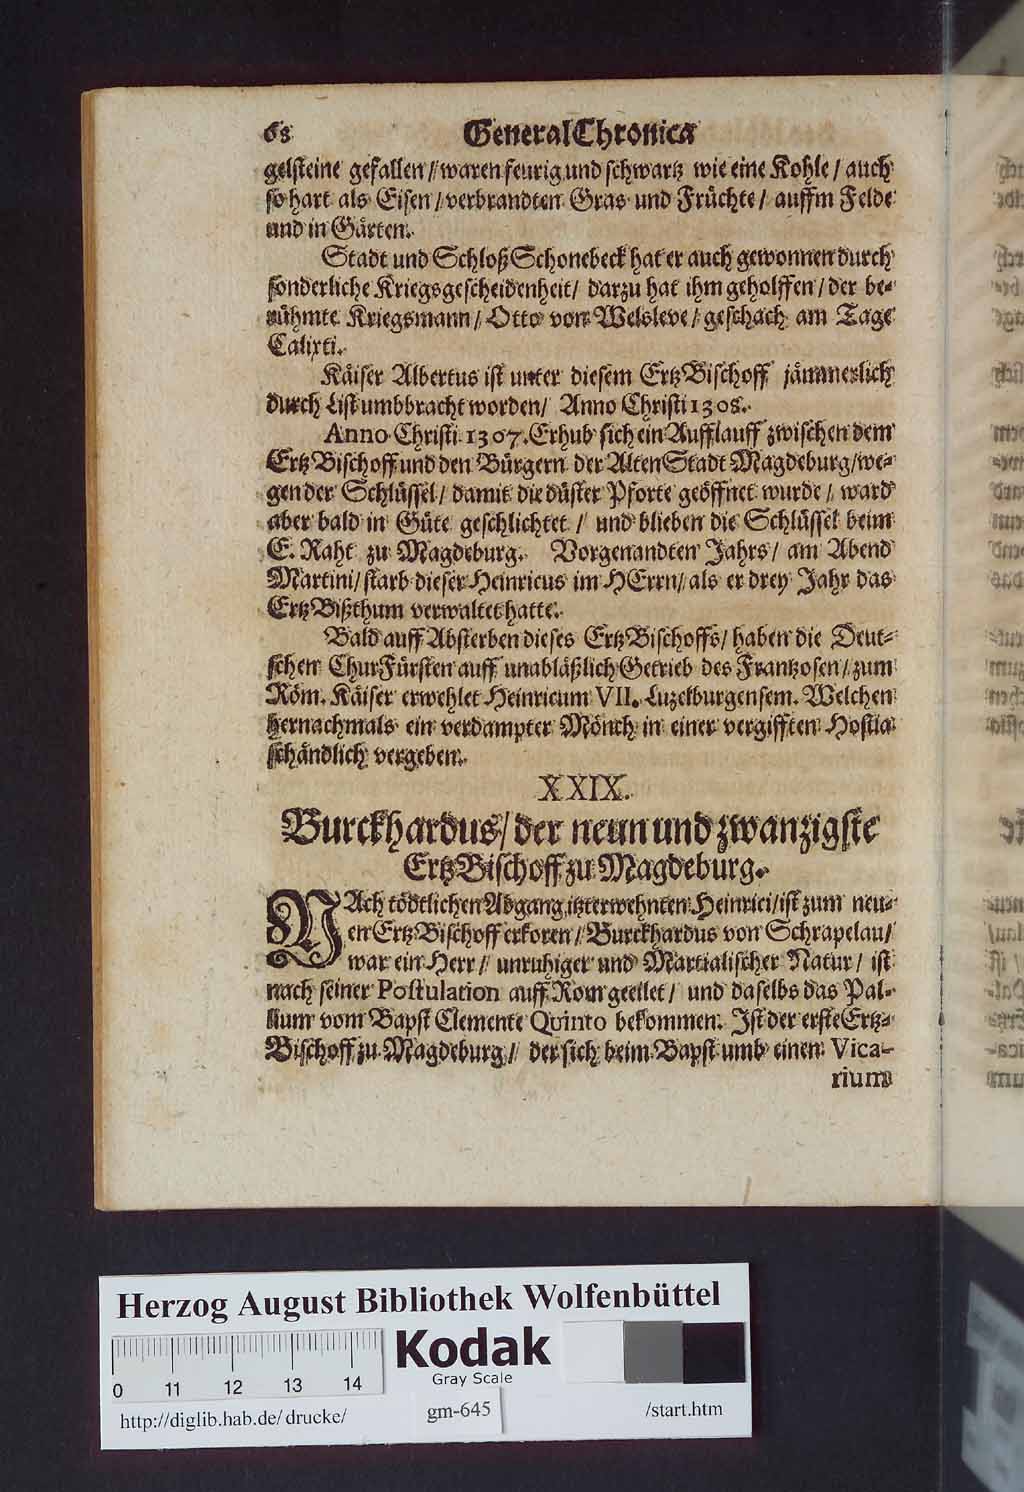 68 General Chronica
gelsteine gefallen / waren feurig und schwartz wie eine Kohle / auch
so hart als Eisen / verbrandten Gras und Früchte / auffm Felde
und in Gärten.
Stadt und Schloß Schonebeck hat er auch gewonnen durch
sonderliche Kriegsgescheidenheit / darzu hat ihm geholffen / der be-
rühmte Kriegsmann / Otto von Welsleve / geschach am Tage
Calixti.
Käiser Albertus ist unter diesem Ertz Bischoff jämmerlich
durch List umbbracht worden / Anno Christi 1308.
Anno Christi 1307. Erhub sich ein Aufflauff zwischen dem
Ertz Bischoff und den Bürgern der Alten Stadt Magdeburg / we-
gen der Schlüssel / damit die düster Pforte geöffnet wurde / ward
aber bald in Güte geschlichtet / und blieben die Schlüssel beim
E. Raht zu Magdeburg. Vorgenandten Jahrs / am Abend
Martini / starb dieser Heinricus im HErrn / als er drey Jahr das
Ertz Bißthum verwaltet hatte.
Bald auff Absterben dieses Ertz Bischoffs / haben die Deut-
schen ChurFürsten auff unabläßlich Getrieb des Frantzosen / zum
Röm. Käiser erwehlet Heinricum VII. Luzelburgensem. Welchen
hernachmals ein verdampter Mönch in einer vergifften Hostia
schändlich vergeben.
XXIX.
Burckhardus / der neun und zwanzigste
Ertz Bischoff zu Magdeburg.
NAch tödtlichen Abgang itzterwehnten Heinrici / ist zum neu-
en Ertz Bischoff erkoren / Burckhardus von Schrapelau /
war ein Herr / unruhiger und Martialischer Natur / ist
nach seiner Postulation auff Rom geeilet / und daselbs das Pal-
lium vom Bapst Clemente Quinto bekommen. Ist der erste Ertz-
Bischoff zu Magdeburg / der sich beim Bapst umb einen Vica-
rium
Herzog August Bibliothek Wolfenbüttel
Kodak
Gray Scale
0 11 12 13 14
http://diglib.hab.de/drucke/ gm-645 /start.htm